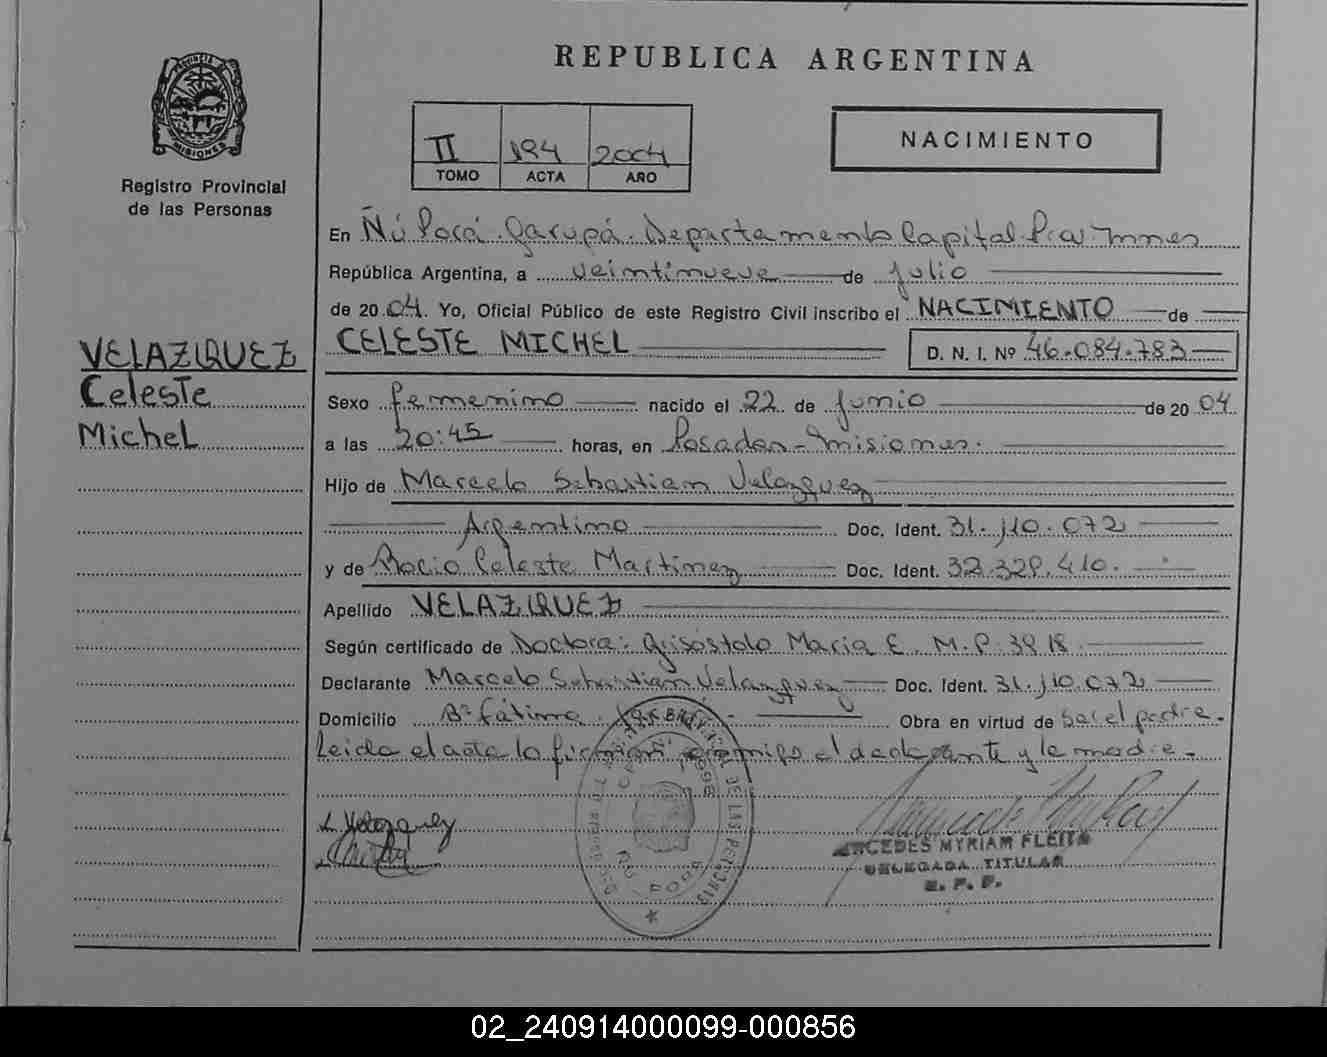 REPUBLICA ARGENTINA
PROVINCIA DE
MISIONES
Registro Provincial
de las Personas
II 194 2004
TOMO ACTA AÑO
NACIMIENTO
En Ñú Porá. Garupá. Departamento Capital. Pcia. Mnes
República Argentina, a veintinueve de julio
de 2004. Yo, Oficial Público de este Registro Civil inscribo el NACIMIENTO de
VELAZQUEZ
Celeste
Michel
CELESTE MICHEL D. N. I. Nº 46.084.783
Sexo femenino nacido el 22 de junio de 2004
a las 20:45 horas, en Posadas-Misiones.
Hijo de Marcelo Sebastian Velazquez
Argentino Doc. Ident. 31.110.072
y de Rocio Celeste Martinez Doc. Ident. 32.329.410.
Apellido VELAZQUEZ
Según certificado de Doctora: Maria E. M.P. 3918
Declarante Marcelo Sebastian Velazquez Doc. Ident. 31.110.072
Domicilio Bº Fátima Obra en virtud de ser el padre.
Leida el acta la firman conmigo el declarante y la madre.
Velazquez
MERCEDES MYRIAM FLEITA
DELEGADA TITULAR
R. P. P.
DE LAS PERSONAS
02_240914000099-000856